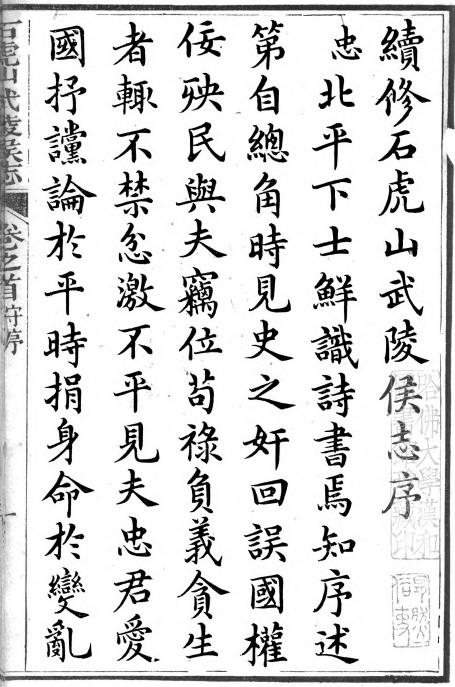 續修石虎山武陵侯志序
忠北平下士鮮識詩書焉知序述
第自總角時見史之奸回誤國權
佞殃民與夫竊位苟祿負義貪生
者輙不禁忿激不平見夫忠君愛
國抒讜論於平時捐身命於變亂
石虎山武陵侯志
卷之首
哈佛大學漢和